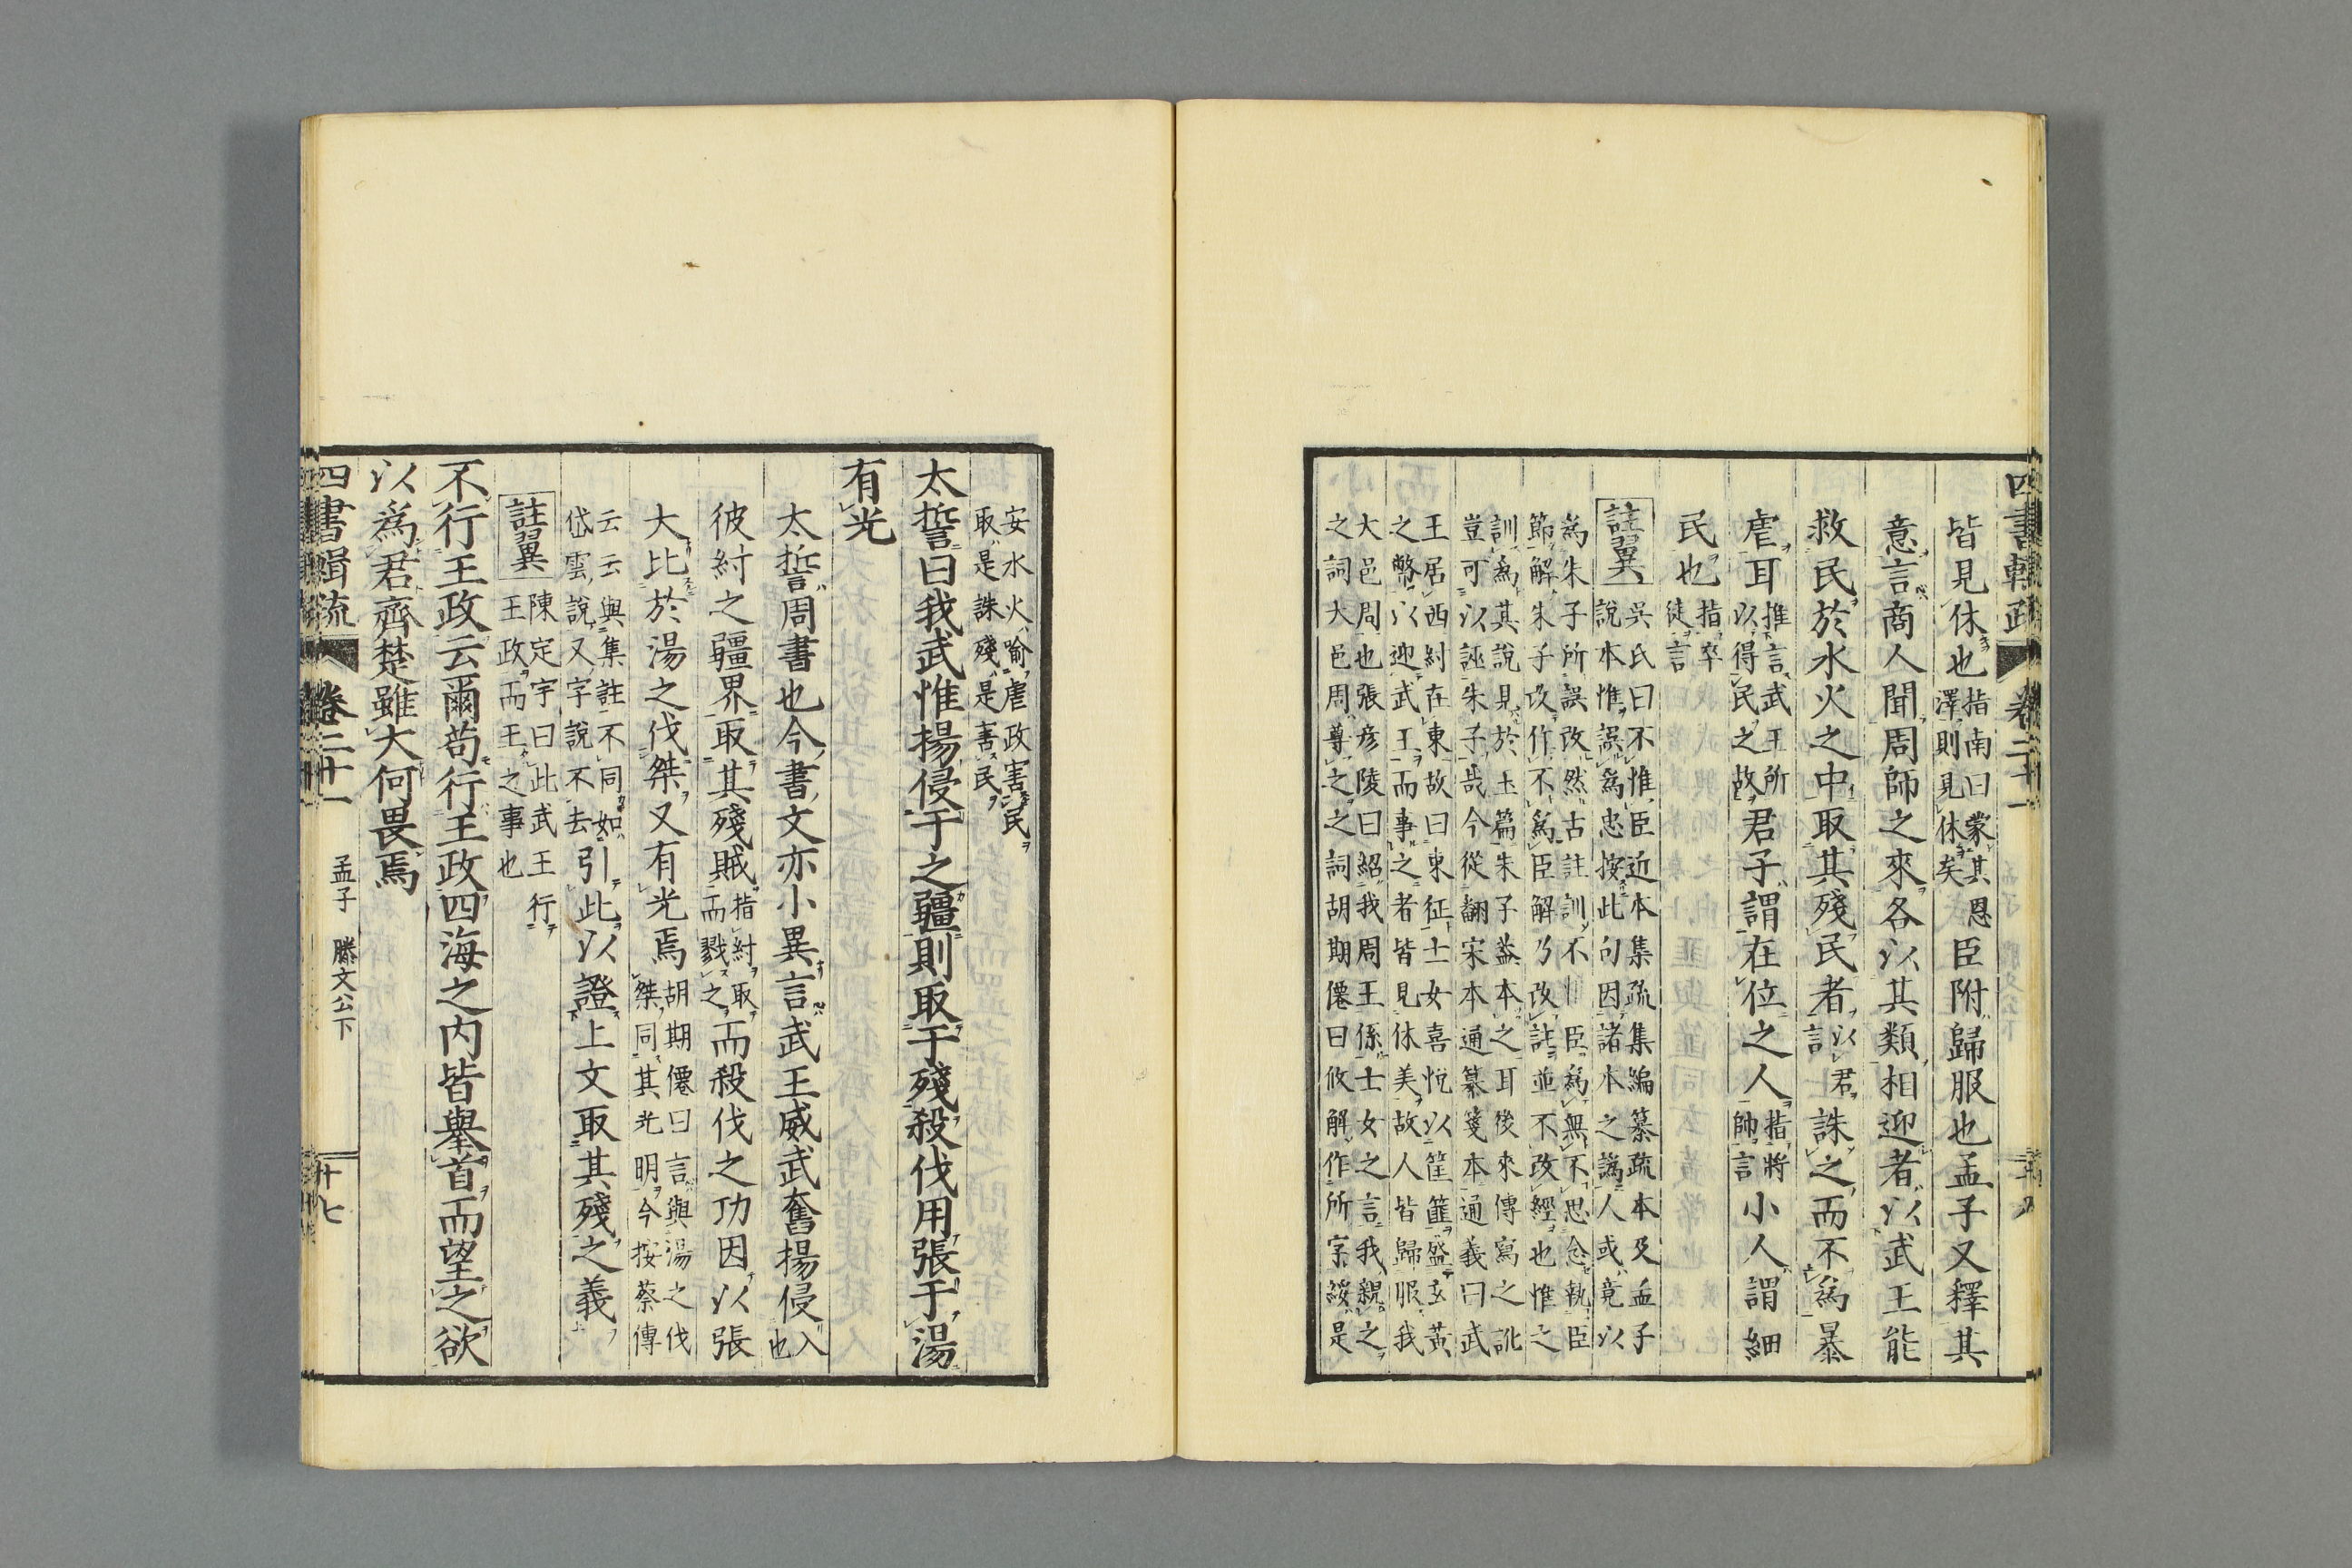 四書輯疏 卷二十一
皆見休也指南曰蒙其恩
澤則見休矣臣附歸服也孟子又釋其
意言商人聞周師之來各以其類相迎者以武王能
救民於水火之中取其殘民者以君
言誅之而不爲暴
虐耳推言武王所
以得民之故君子謂在位之人指將
帥言小人謂細
民也指卒
徒言
註翼 吳氏曰不惟臣近本集疏集編纂疏本及孟子
說本惟誤爲忠按此句因諸本之譌人或竟以
爲朱子所誤改然古註訓不惟臣爲無不思念執臣
節解朱子改作不爲臣解乃改註並不改經也惟之
訓爲其說見於上篇朱子葢本之耳後來傳寫之訛
豈可以誣朱子哉今從翻宋本通纂箋本通義曰武
王居西紂在東故曰東征士女喜悅以筐篚盛玄黃
之幣以迎武王而事之者皆見休美故人皆歸服我
大邑周也張彥陵曰紹我周王係士女之言我親之
之詞大邑周尊之之詞胡期僊曰攸解作所字綏是
安水火喻虐政害民
取是誅殘是害民
太誓曰我武惟揚侵于之疆則取于殘殺伐用張于湯
有光
太誓周書也今書文亦小異言武王威武奮揚侵入
也
彼紂之疆界取其殘賊指紂取
而戮之而殺伐之功因以張
大比於湯之伐桀又有光焉胡期僊曰言與湯之伐
桀同其光明今按蔡傳
云云與集註不同如
岱雲說又字說不去引此以證上文取其殘之義
註翼 陳定宇曰此武王行
王政而王之事也
不行王政云爾苟行王政四海之内皆舉首而望之欲
以爲君齊楚雖大何畏焉
四書輯疏 卷二十一 孟子 滕文公下 十七